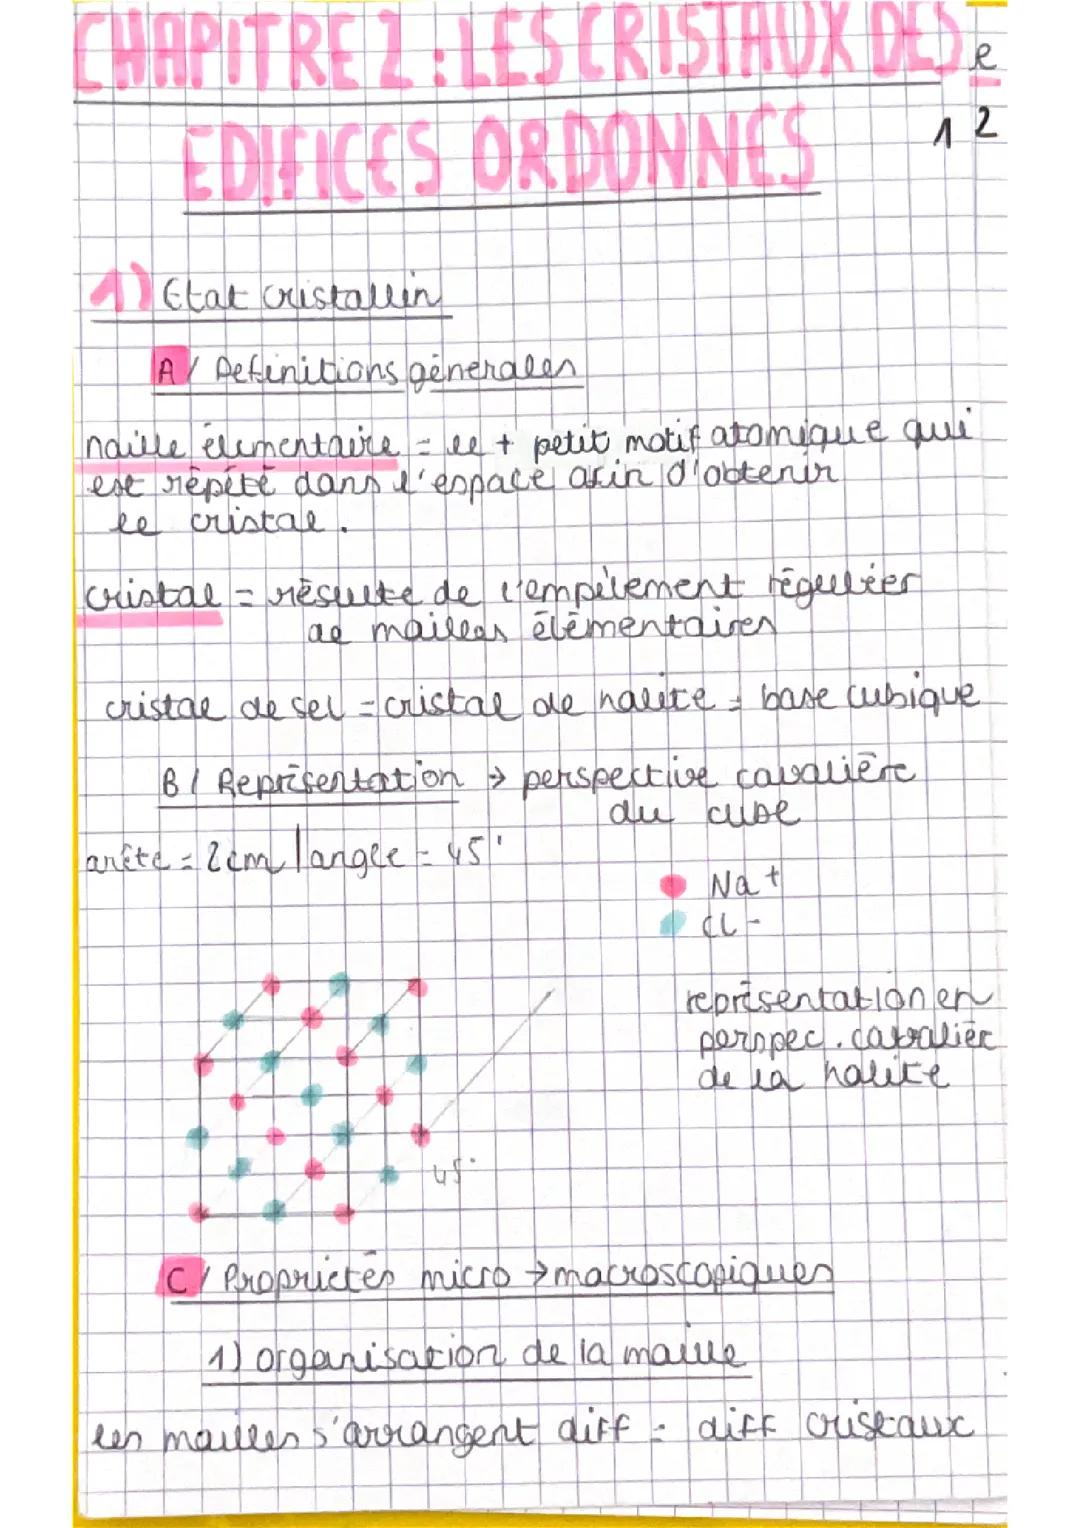 CHAPITRE 2 : LES CRISTAUX DES
e
EDIFICES ORDONNES
1 2
1) Etat cristallin
A / Definitions génerales
maille élementaire = le + petit motif atomique qui
est répété dans l'espace afin d'obtenir
le cristal.
cristal = résulte de l'empilement régulier
de mailles élémentaires
cristal de sel = cristal de halite = base cubique
B / Représentation → perspective cavalière
du cube
arête = 2cm / angle = 45°
Na+
Cl-
représentation en
perspec. cavalièr
de la halite
45°
C / Propriétés micro → macroscopiques
1) organisation de la maille
les mailles s'arrangent diff = diff cristaux